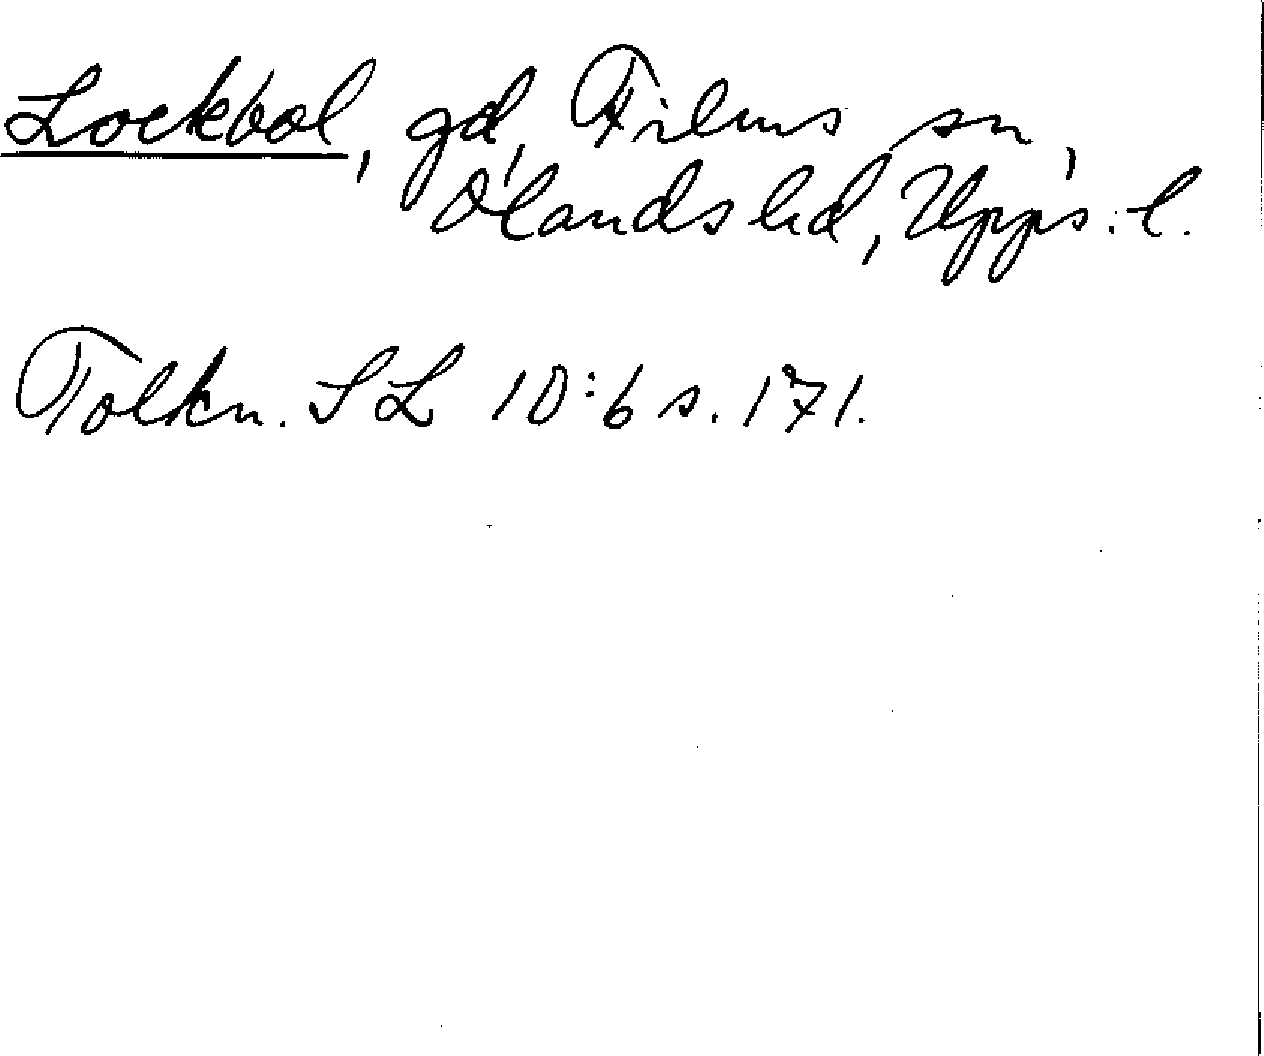 Lockbol, gd, Films sn,
Ölands hd, Upps. l.
Tolkn. SL 10:6 s. 171.